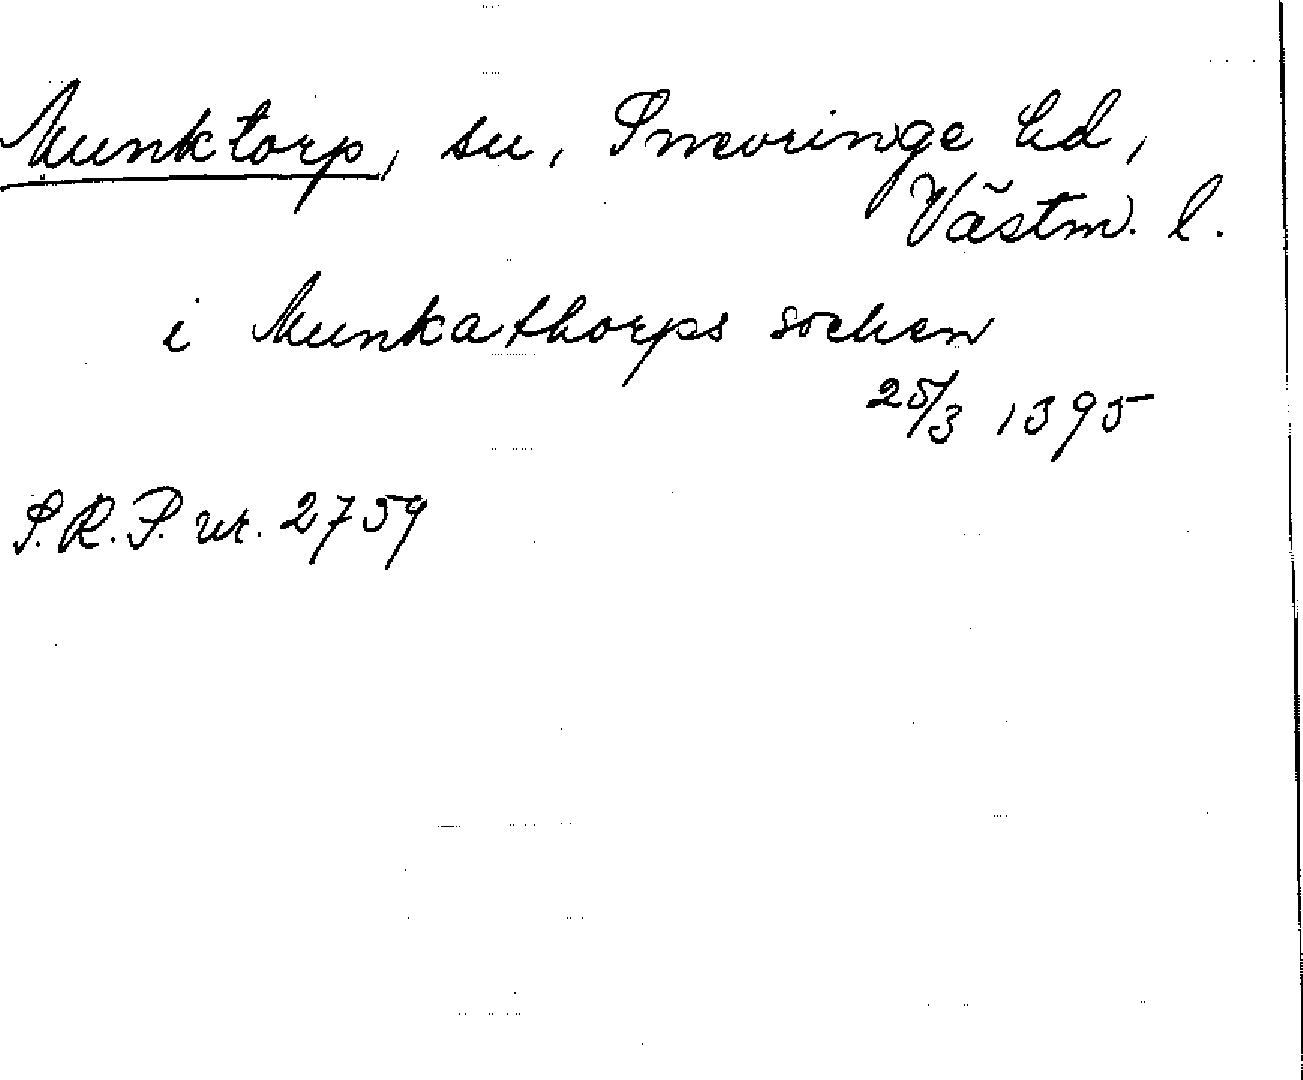 Munktorp, sn, Snevringe hd,
Västm. l.
i Munkathorps sochen
25/3 1395
S.R.P. nr. 2759